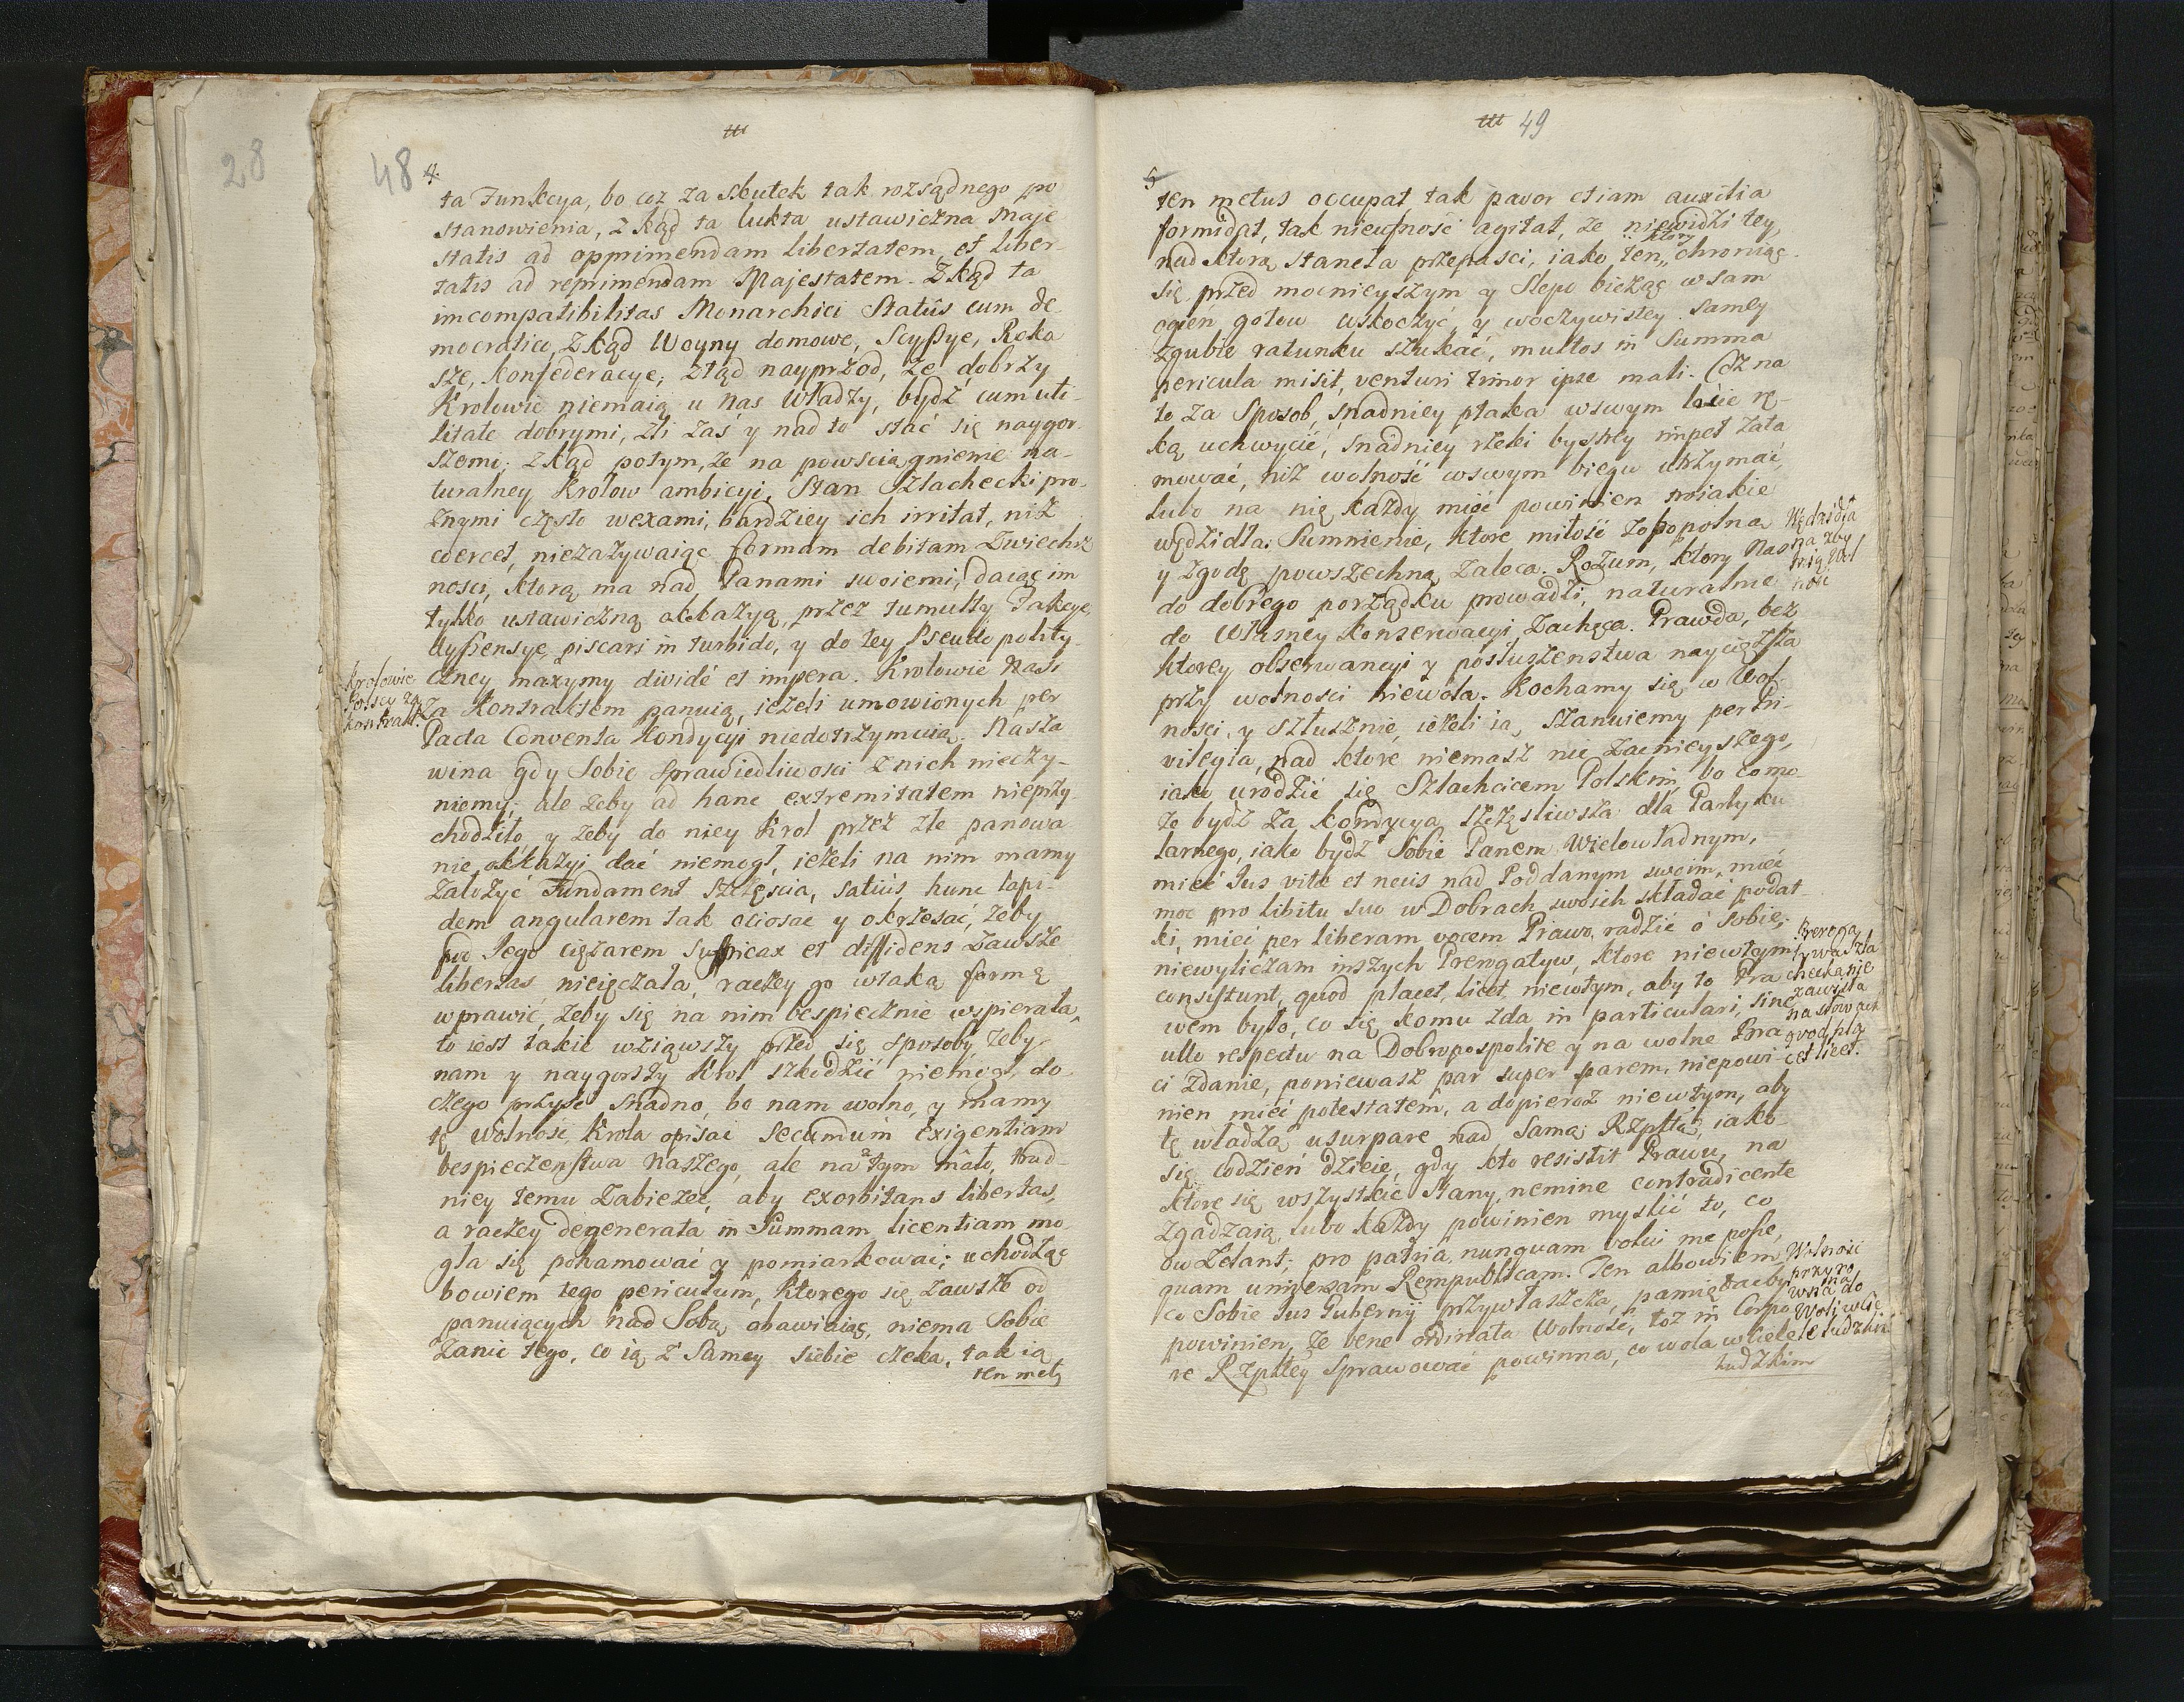 28
48
4.
ta Funkcya, bo coż za skutek tak rozsądnego po
stanowienia, zkąd ta lukta ustawiczna Maje
statis ad opprimendam libertatem, et liber-
tatis ad reprimendam Majestatem. Zkąd ta
imcompatibilitas Monarchici Statûs cum de
mocratico, Zkąd Woyny domowe, Scyssye, Roko
sze, Konfederacye; ztąd nayprzod, że dobrzy
Krolowie niemaią u nas Władzy, bydź cum uti-
litate dobrymi, źli zaś y nad to stać się naygor
szemi; zkąd potym, że na powsciągnienie na-
turalney Krolow ambicyi, Stan Szlachecki pro-
żnymi często wexami, bardziey ich irritat, niż
coercet, niezażywaiąc formam debitam Zwierzch
nosci, ktorą ma nad Panami swoiemi, daiąc im
tylko ustawiczną okkazyą, przez tumulty Fakcye,
dyssensye, piscari in turbido, y do tey Pseudo polity-
czney maxymy divide et impera. Krolowie Nasi
za Kontraktem panuią, ieżeli umowionych per
Pacta Conventa Kondycyi niedotrzymuią. Nasza
wina gdy Sobie sprawiedliwosci z nich nieczy-
niemy; ale żeby ad hanc extremitatem nieprzy
chodziło, y żeby do niey Krol przez złe panowa
nie okkazyi dać niemogł, ieżeli na nim mamy
założyć Fundament szczęscia, satius, hunc lapi-
dem angularem tak ociosać y okrzesać, żeby
pod Jego ciężarem suspicax et diffidens zawsze
libertas nieięczała, raczey go wtaką formę
wprawić, żeby się na nim bespiecznie wspierała,
to iest takie wziąwszy przed się sposoby żeby
nam y naygorszy Krol szkodzić niemogł, do
czego przyść snadno, bo nam wolno, y mamy
tę wolnosc Krola opisać secundum exigentiam
bespieczenstwa naszego, ale na tym mało, trud-
niey temu zabieżeć, aby exorbitans libertas,
a raczey degenerata in Summam licentiam mo
gła się pohamować y pomiarkować; uchodząc
bowiem tego periculum, ktorego się zawsze od
panuiących nad Sobą obawiaiąc, niema Sobie
zanic tego, co ią z Samey siebie czeka, tak ią
ten met9
Krolowie
Polscy za
kontrakt.
49
5
ten metus occupat tak pavor etiam auxilia
formidat, tak nieufność agitat, że niewidzi tey,
nad ktorą staneła przepasci, iako ten, ktory chroniąc
się przed mocnieyszym y slepo bieżąc wsam
ogień gotow wskoczyć, y woczywistey samey
zgubie ratunku szukać, multos in Summa
pericula misit, venturi timor ipse mali. Coż na
to za sposob, snadniey ptaka wswym locie rę-
ką uchwycić, snadniey rzeki bystrey impet zata
mować, niż wolność wswym biegu utrzymać,
lubo na nię każdy mieć powinien troiakie
wędzidła. Sumnienie, ktore miłość pospolna
y zgodę powszechną zaleca. Rozum, ktory Nas
do dobrego porządku prowadzi, naturalnie
do własney Konserwacyi zachęca. Prawda, bez
ktorey obserwancyi y posłuszenstwa naycięższa
przy wolnosci niewola. Kochamy się w Wol-
nosci, y słusznie, ieżeli ią szanuiemy per Pri-
vilegia, nad ktore niemasz nic zacnieyszego,
iako urodzić się Szlachcicem Polskim, bo co mo-
że bydź za kondycya szczęsliwsza dla Partyku
larnego, iako bydź Sobie Panem Wielowładnym,
mieć Jus vitæ et necis nad Poddanym swoim, mieć
moc pro libitu suo w Dobrach swoich składać podat-
ki, mieć per liberam vocem Prawo, radzić o Sobie;
niewyliczam inszych Prerogatyw, ktore niewtym
consistunt, quod placet, licet, niewtym, aby to Pra
wem było, co się komu zda in particulari, sine
ullo respectu na Dobropospolite y na wolne Bra
ci zdanie, ponieważ par super parem, niepowi-
nien mieć potestatem, a dopieroż niewtym, aby
tę władzą usurpare nad samą Rzpltą, iako
się codzień dzieie, gdy kto resistit Prawu, na
ktore się wszystkie Stany, nemine contradicente
zgadzaią, lubo każdy powinien myslić to, co
ow Zelant; pro patria nunquam volui me posse,
quam universam Rempublicam. Ten albowiem
co Sobie Jus Gubernij przywłaszcza, pamiętaćby
powinien, że bene ordinata Wolność, toż in Corpo
re Rzpltey sprawować powinna, co wola w ciele
ludzkim
Wędzidła
na zby
tnią wol
ność
Preroga
tywa szla
checka nie
zawisła
na słowach
quod pla
cet licet.
Wolność
przyro
wna do
Woli w cie
le ludzkim